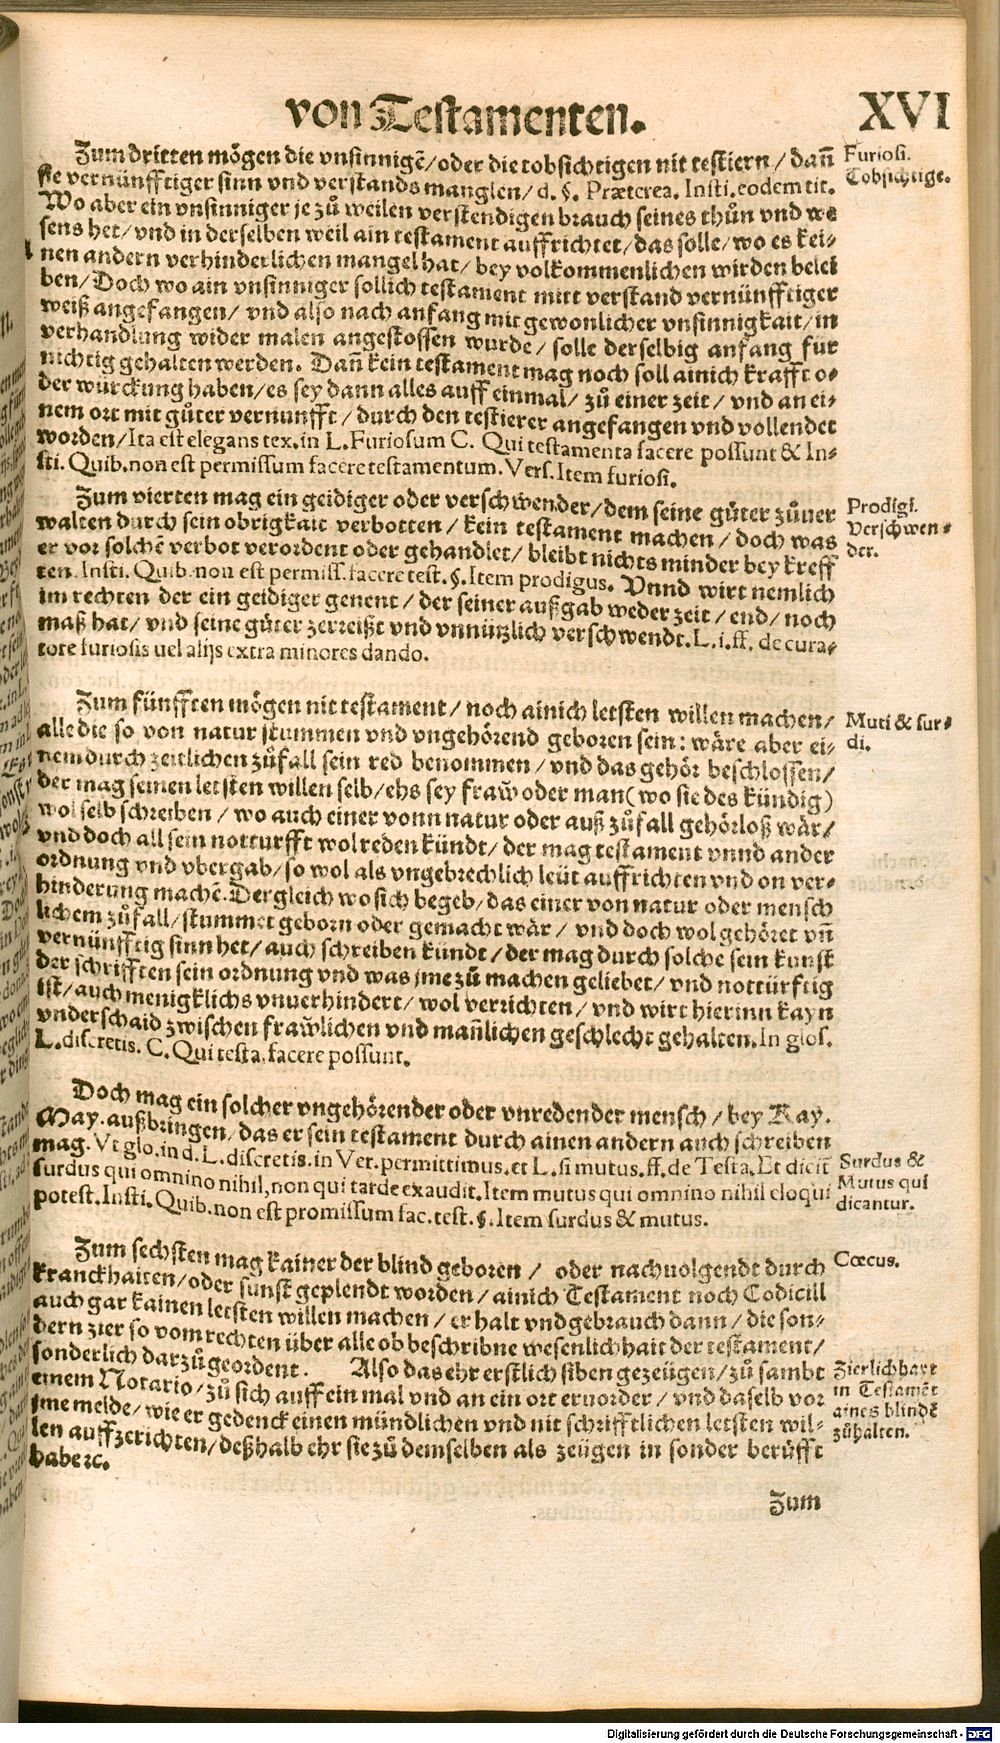 von Testamenten.
XVI
Zum dritten mögen die vnsinnigē/oder die tobsichtigen nit testiern/dañ
sie vernünfftiger sinn vnd verstands manglen/d. §. Præterea. Insti. eodem tit.
Wo aber ein vnsinniger je zů weilen verstendigen brauch seines thůn vnd we
sens het/vnd in derselben weil ain testament auffrichtet/das solle/wo es kei-
nen andern verhinderlichen mangel hat/bey volkommenlichen wirden belei
ben/Doch wo ain vnsinniger sollich testament mitt verstand vernünfftiger
weiß angefangen/vnd also nach anfang mit gewonlicher vnsinnigkait/in
verhandlung wider malen angestossen wurde/solle derselbig anfang für
nichtig gehalten werden. Dañ kein testament mag noch soll ainich krafft o-
der würckung haben/es sey dann alles auff einmal/zů einer zeit/vnd an ei-
nem ort mit gůter vernunfft/durch den testierer angefangen vnd vollendet
worden/Ita est elegans tex. in L. Furiosum C. Qui testamenta facere possunt & In-
sti. Quib. non est permissum facere testamentum. Vers. Item furiosi.
Furiosi.
Tobsichtige.
Zum vierten mag ein geidiger oder verschwender/dem seine gůter zůuer
walten durch sein obrigkait verbotten/kein testament machen/doch was
er vor solchē verbot verordent oder gehandlet/bleibt nichts minder bey kreff
ten. Insti. Quib. non est permiss. facere test. §. Item prodigus. Vnnd wirt nemlich
im rechten der ein geidiger genent/der seiner außgab weder zeit/end/noch
maß hat/vnd seine gůter zerreißt vnd vnnützlich verschwendt. L. i. ff. de cura-
tore furiosis uel alijs extra minores dando.
Prodigi.
Verschwen-
der.
Zum fünfften mögen nit testament/noch ainich letsten willen machen/
alle die so von natur stummen vnd vngehörend geboren sein: wäre aber ei-
nem durch zeitlichen zůfall sein red benommen/vnd das gehör beschlossen/
der mag seinen letsten willen selb/ehs sey fraw oder man (wo sie des kündig)
wol selb schreiben/wo auch einer vonn natur oder auß zůfall gehörloß wär/
vnd doch all sein notturfft wol reden kündt/der mag testament vnnd ander
ordnung vnd vbergab/so wol als vngebrechlich leüt auffrichten vnd on ver-
hinderung machē. Dergleich wo sich begeb/das einer von natur oder mensch
lichem zůfall/stummet geborn oder gemacht wär/vnd doch wol gehöret vñ
vernünfftig sinn het/auch schreiben kündt/der mag durch solche sein kunst
der schrifften sein ordnung vnd was jme zů machen geliebet/vnd nottürftig
ist/auch menigklichs vnuerhindert/wol verrichten/vnd wirt hierinn kayn
vnderschaid zwischen frawlichen vnd mañlichen geschlecht gehalten. In glos.
L. discretis. C. Qui testa. facere possunt.
Muti & sur-
di.
Doch mag ein solcher vngehörender oder vnredender mensch/bey Kay.
May. außbringen/das er sein testament durch ainen andern auch schreiben
mag. Vt glo. in d. L. discretis. in Ver. permittimus. et L. si mutus. ff. de Testa. Et dicit̄
surdus qui omnino nihil, non qui tarde exaudit. Item mutus qui omnino nihil eloqui
potest. Insti. Quib. non est promissum fac. test. §. Item surdus & mutus.
Surdus &
Mutus qui
dicantur.
Zum sechsten mag kainer der blind geboren/ oder nachuolgendt durch
kranckhaiten/oder sunst geplendt worden/ainich Testament noch Codicill
auch gar kainen letsten willen machen/er halt vnd gebrauch dann/die son-
dern zier so vom rechten über alle ob beschribne wesenlichhait der testament/
sonderlich darzů geordent. Also das ehr erstlich siben gezeügen/zů sambt
einem Notario/zů sich auff ein mal vnd an ein ort eruorder/vnd daselb vor
jme melde/wie er gedenck einen mündlichen vnd nit schrifftlichen letsten wil-
len auffzerichten/deßhalb ehr sie zů demselben als zeügen in sonder berüfft
habe ꝛc.
Cœcus.
Zierlichhayt
in Testamēt
aines blindē
zůhalten.
Zum
Digitalisierung gefördert durch die Deutsche Forschungsgemeinschaft - DFG